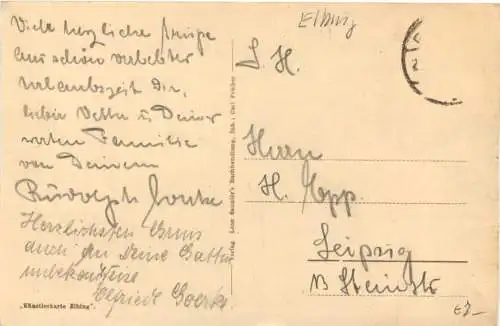 Viele herzliche Grüsse
aus schön verlebter
Urlaubszeit Dir,
lieber Vetter u. Deiner
werten Familie
von Deinem
Rudolph
Herzlichsten Gruss
auch an Deine Gattin
unbekannterweise
Elfriede Goerke
„Künstlerkarte Elbing“.
Verlag Leon Saunier's Buchhandlung, Inh.: Carl Fröhlich
Elbing
S. H.
Herrn
H. Epp
Leipzig